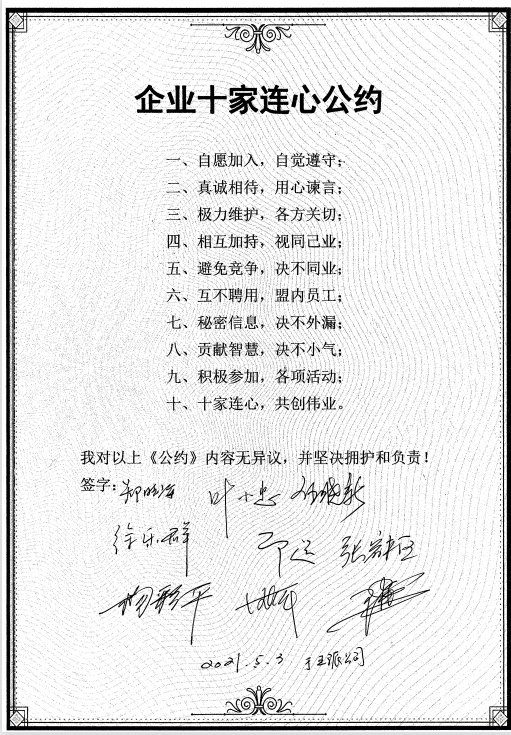 企业十家连心公约
一、自愿加入，自觉遵守；
二、真诚相待，用心谏言；
三、极力维护，各方关切；
四、相互加持，视同己业；
五、避免竞争，决不同业；
六、互不聘用，盟内员工；
七、秘密信息，决不外漏；
八、贡献智慧，决不小气；
九、积极参加，各项活动；
十、十家连心，共创伟业。
我对以上《公约》内容无异议，并坚决拥护和负责！
签字： 叶小忠
徐乐群
杨彩平
2021.5.3 于王派公司